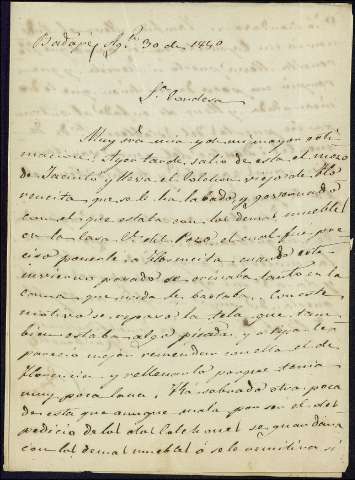 Badajoz Ag.to 30 de 1840
S.ra Condesa
Muy Sra mia y de mi mayor esti-
macion: Ayer tarde salio de esta el mozo
de Jacinto y lleva el Colchon viejo de Flo-
rencita que se le há labado y governado
con el que estaba con los demas muebles
en la casa C.e del Pozo el cual fue pre-
ciso ponerle a Florencita cuando este
invierno pasado se orinaba tanto en la
cama que nada le bastaba. Con este
motivo se reparó la tela que tam-
bien estaba algo picada y a Pepa le
parecio mejor remendar con ella el de
Florencia y rellenarlo porque tenia
muy poca lana. Ha sobrado otra poca
de esta que aunque mala por ser el des-
perdicio de los dos colchones se guardara
con los demas muebles ó se le remitira si